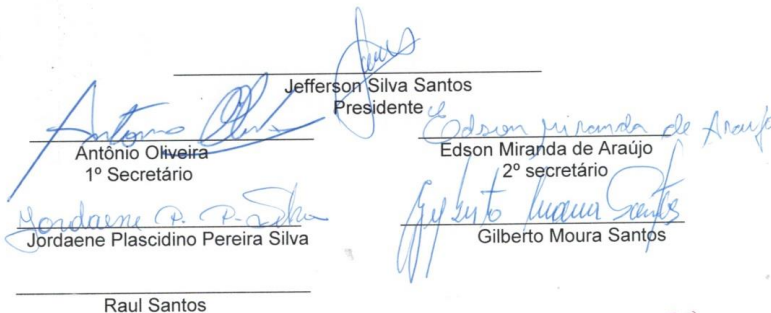 Jefferson Silva Santos
Presidente
Antonio Oliv
Antônio Oliveira
1º Secretário
Edson Miranda de Araújo
Edson Miranda de Araújo
2º secretário
Jordaene P. P. Silva
Jordaene Plascidino Pereira Silva
Gilberto Moura Santos
Gilberto Moura Santos
Raul Santos